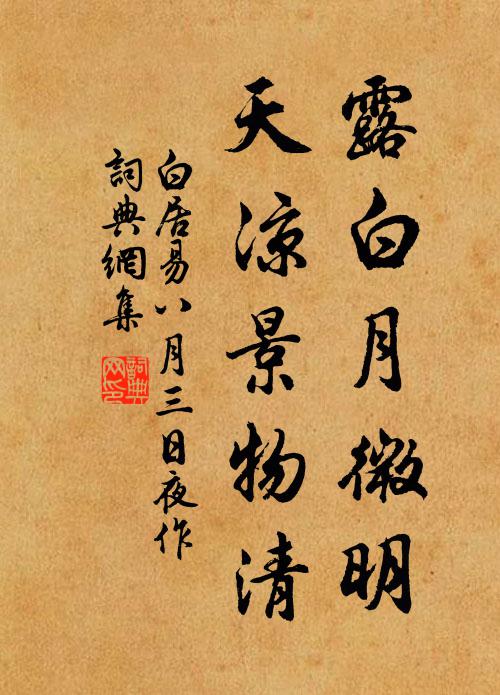 露白月微明
天涼景物清
白居易八月三日夜作
詞典網集
詞典
网印